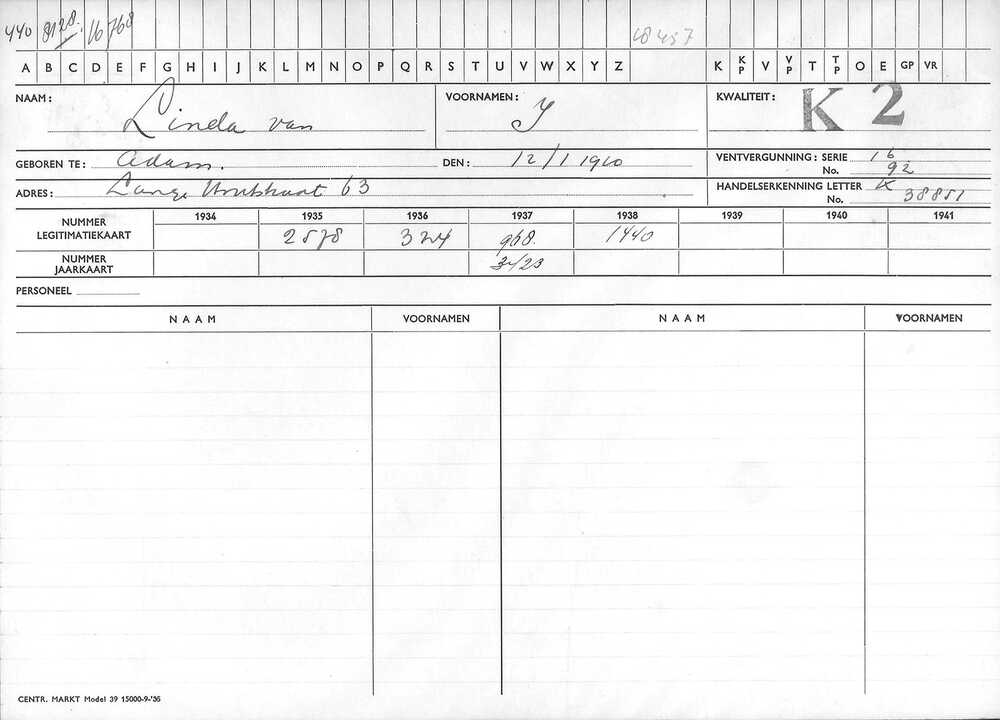 440 8128. 16768 18457
A B C D E F G H I J K L M N O P Q R S T U V W X Y Z K KP V VP T TP O E GP VR
NAAM: Linda van VOORNAMEN: J KWALITEIT: K 2
GEBOREN TE: Adam. DEN: 12/1 1910 VENTVERGUNNING: SERIE 16
No. 92
ADRES: Lange Houtstraat 63 HANDELSERKENNING LETTER K
No. 38851
1934 1935 1936 1937 1938 1939 1940 1941
NUMMER LEGITIMATIEKAART 2578 324 968. 1440
NUMMER JAARKAART 3423
PERSONEEL
NAAM VOORNAMEN NAAM VOORNAMEN
CENTR. MARKT Model 39 15000-9-'36